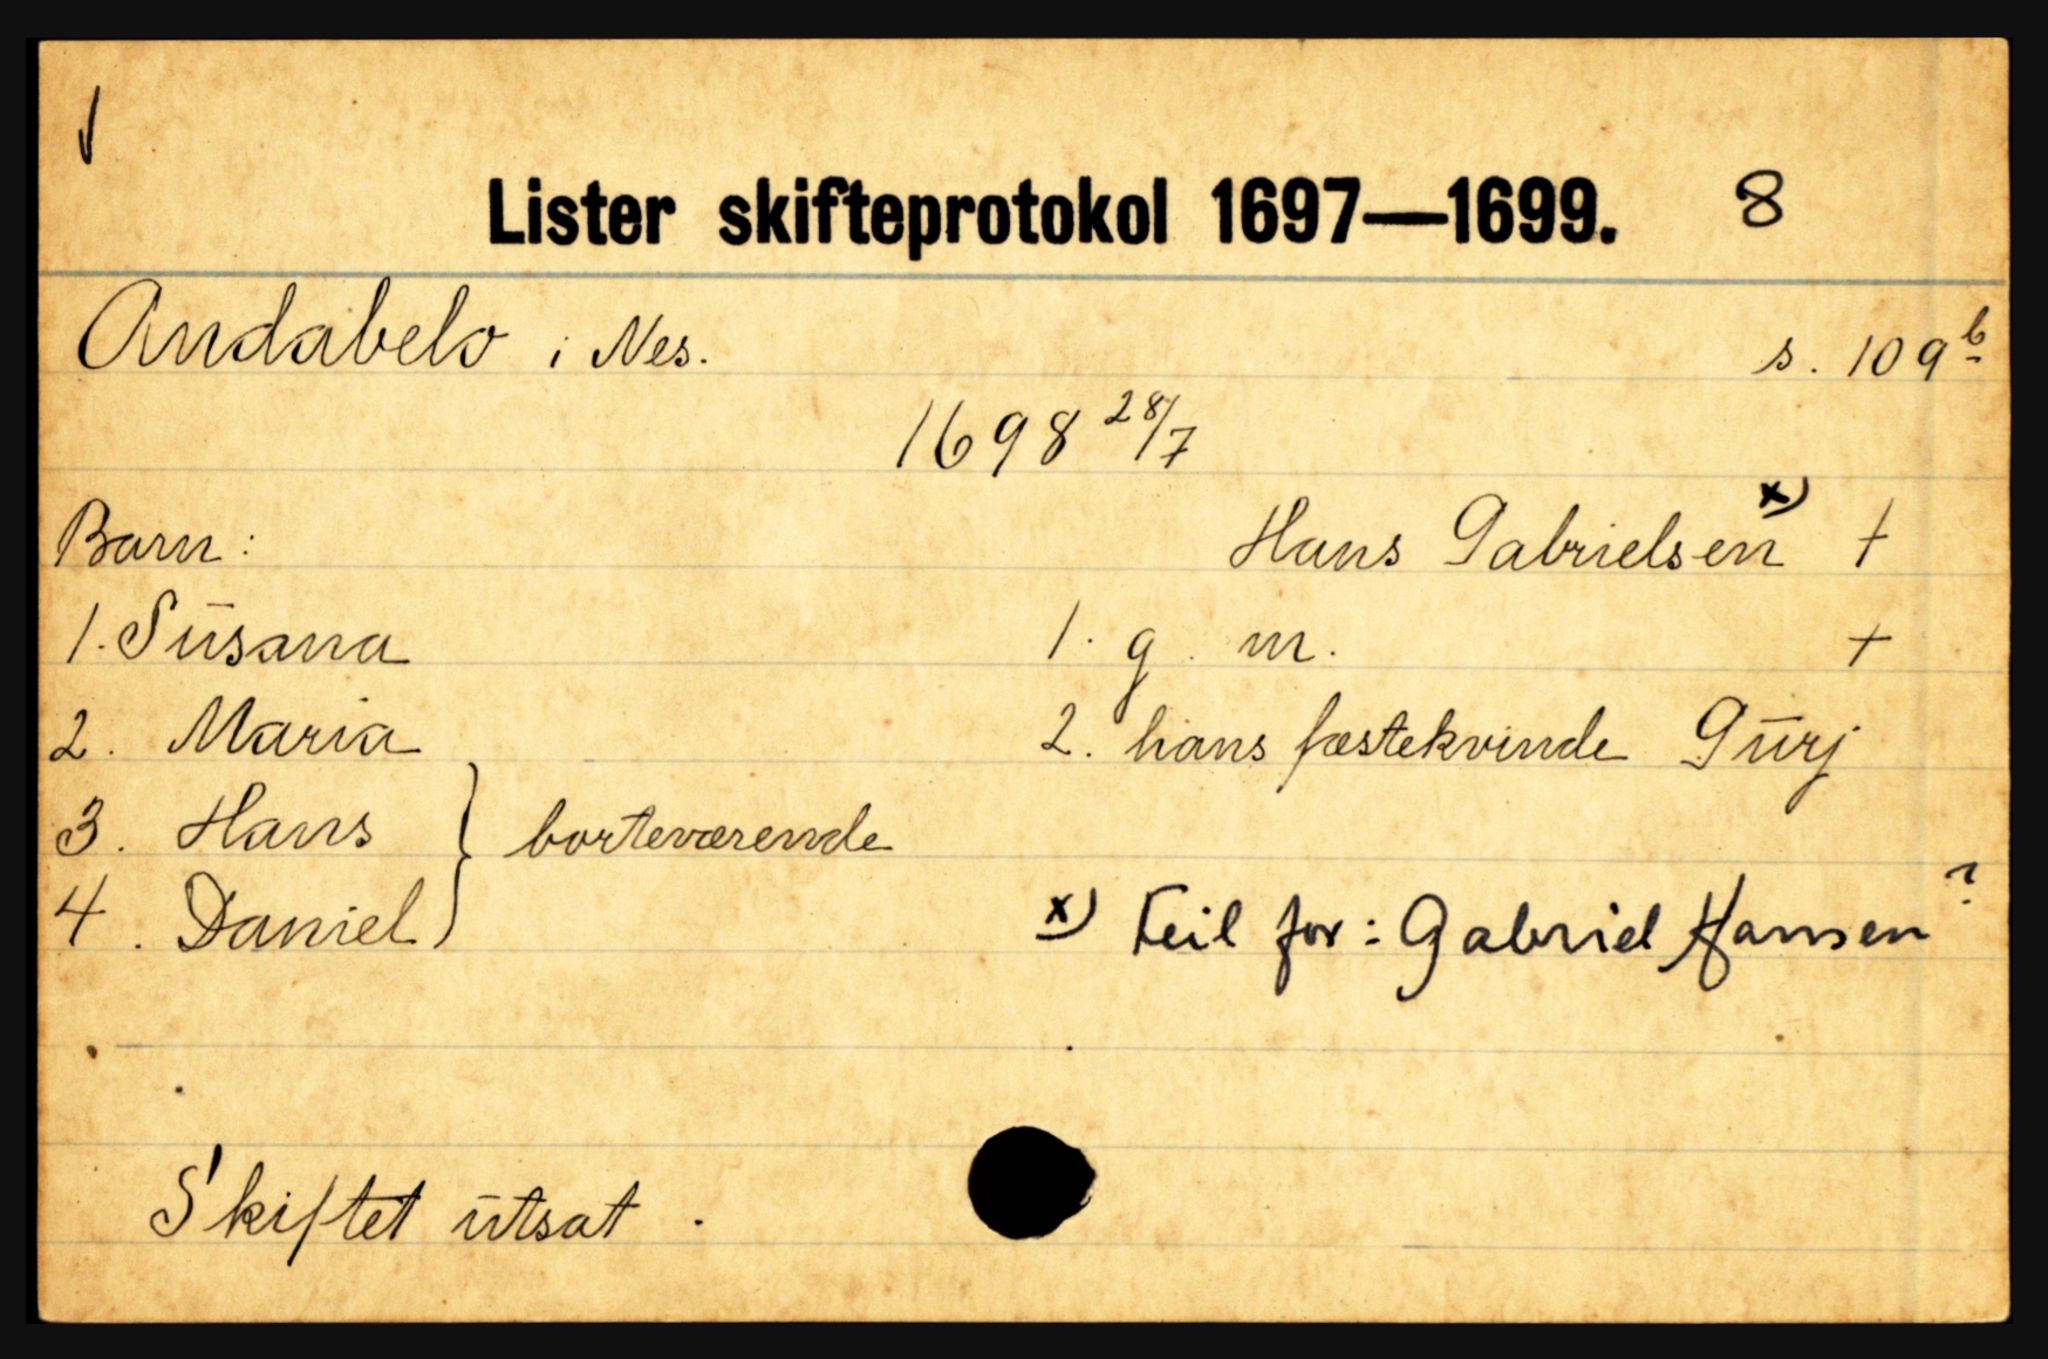 Lister skifteprotokol 1697—1699. 8
Andabelo i Nes. s. 109b
1698 28/7
Barn: Hans Gabrielsen x) †
1. Sūsana 1. g. m. +
2. Maria 2. hans fæstekvinde Gūrj
3. Hans } borteværende
4. Daniel x) Feil for: Gabriel Hansen?
Skiftet ūtsat.